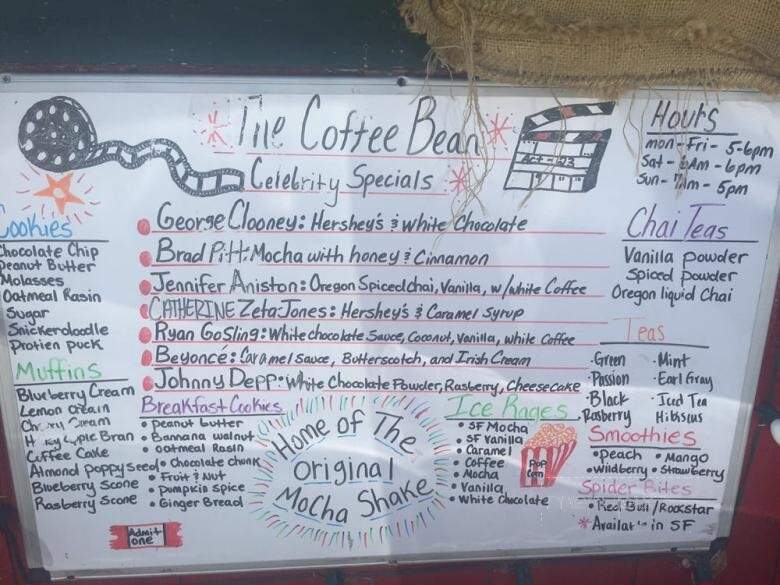 The Coffee Bean
Celebrity Specials
George Clooney: Hershey's & White Chocolate
Brad Pitt: Mocha with honey & Cinnamon
Jennifer Aniston: Oregon Spiced chai, Vanilla, w/white Coffee
CATHERINE Zeta Jones: Hershey's & Caramel Syrup
Ryan Gosling: White chocolate Sauce, Coconut, Vanilla, white Coffee
Beyoncé: Caramel sauce, Butterscotch, and Irish Cream
Johnny Depp: White Chocolate Powder, Rasberry, Cheesecake
Act-123
Hours
mon - Fri - 5-6pm
Sat - 6Am - 6pm
Sun - 7Am - 5pm
Cookies
Chocolate Chip
Peanut Butter
Molasses
Oatmeal Rasin
Sugar
Snickerdoodle
Protien puck
Muffins
Blueberry Cream
Lemon Cream
Cream
Bran
Coffee Cake
Almond poppy seed
Blueberry Scone
Rasberry Scone
Breakfast Cookies
• peanut butter
• Bannana walnut
• oatmeal Rasin
• Chocolate chunk
• Fruit & Nut
• Pumpkin Spice
• Ginger Bread
Admit
one
Home of The
original
Mocha Shake
Ice Rages
• SF Mocha
• SF Vanilla
• Caramel
• Coffee
• Mocha
• Vanilla
• White Chocolate
Pop
Corn
Chai Teas
Vanilla powder
Spiced powder
Oregon liquid Chai
Teas
·Green ·Mint
·Passion ·Earl Gray
·Black ·Iced Tea
·Rasberry Hibiscus
Smoothies
•peach •Mango
•Wildberry •Strawberry
Spider Bites
•Red Bull/Rockstar
*Available in SF